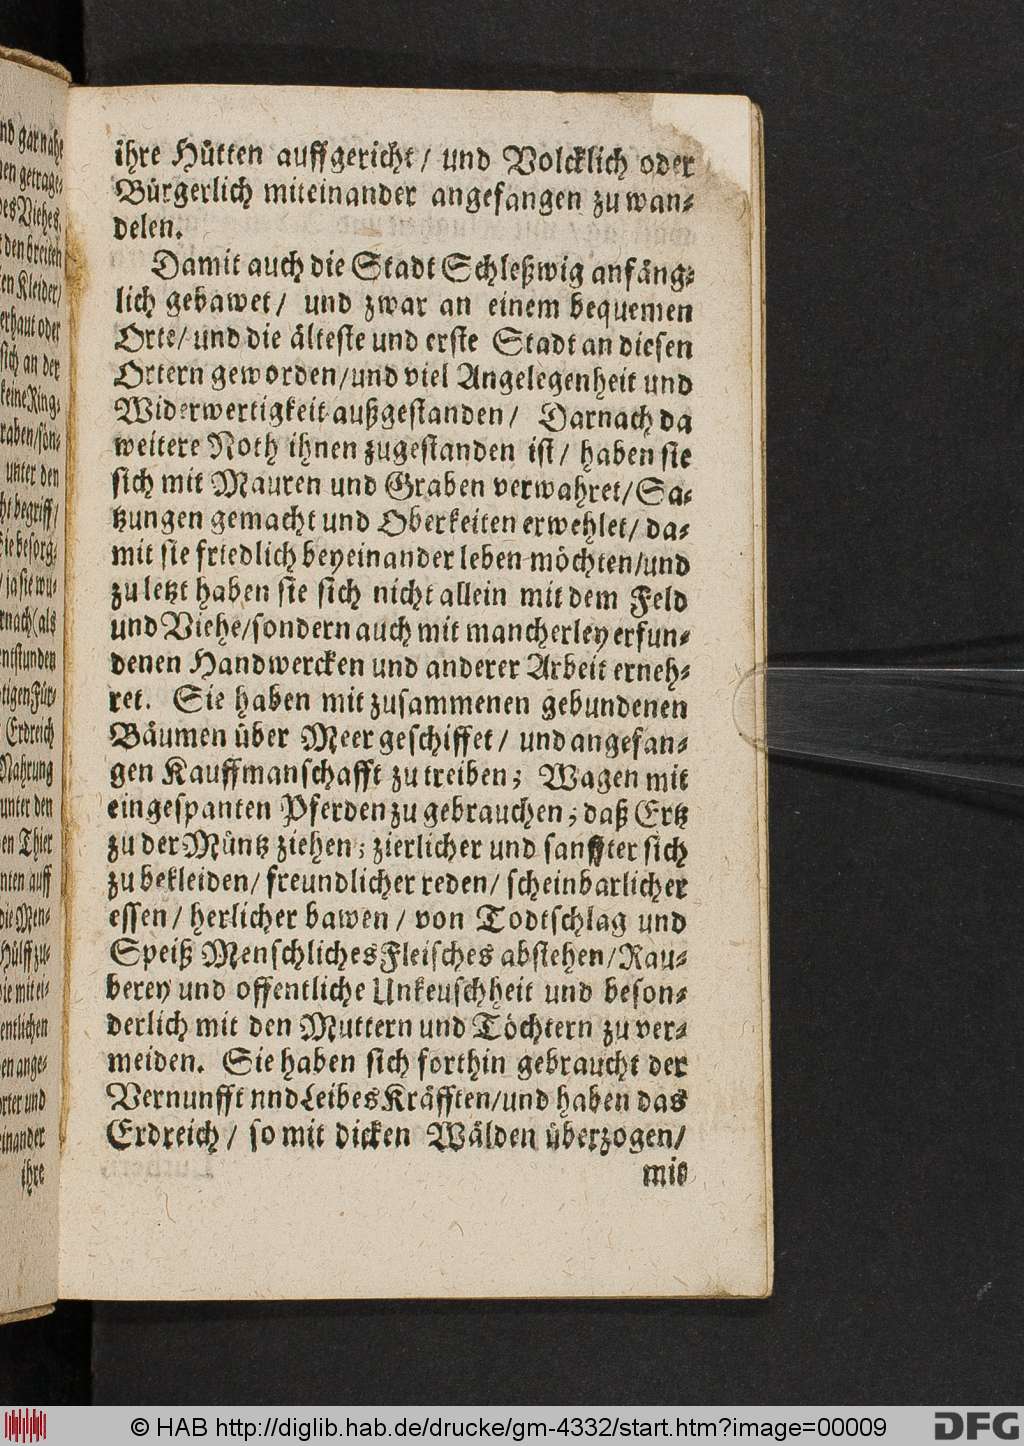 nd gar nahe
en getrage-
des Viehes,
den breiten
en Kleider/
erhaut oder
sich an der
keine Ring-
raben/son-
unter den
ht begriff/
ie besorg-
/ ja sie wü-
rnach (als
ntstunden
tigen Für-
Erdreich
Nahrung
unter den
en Thier
nten auff
die Men-
Hülff zu-
ie mit ei-
entlichen
en ange-
rter und
einander
ihre
ihre Hütten auffgericht / und Volcklich oder
Bürgerlich miteinander angefangen zu wan-
delen.
Damit auch die Stadt Schleßwig anfäng-
lich gebawet / und zwar an einem bequemen
Orte / und die älteste und erste Stadt an diesen
Ortern geworden / und viel Angelegenheit und
Widerwertigkeit außgestanden / Darnach da
weitere Noth ihnen zugestanden ist / haben sie
sich mit Mauren und Graben verwahret / Sa-
tzungen gemacht und Oberkeiten erwehlet / da-
mit sie friedlich beyeinander leben möchten / und
zu letzt haben sie sich nicht allein mit dem Feld
und Viehe / sondern auch mit mancherley erfun-
denen Handwercken und anderer Arbeit erneh-
ret. Sie haben mit zusammenen gebundenen
Bäumen über Meer geschiffet / und angefan-
gen Kauffmanschafft zu treiben; Wagen mit
eingespanten Pferden zu gebrauchen; daß Ertz
zu der Müntz ziehen; zierlicher und sanffter sich
zu bekleiden / freundlicher reden / scheinbarlicher
essen / herlicher bawen / von Todtschlag und
Speiß Menschliches Fleisches abstehen / Rau-
berey und offentliche Unkeuschheit und beson-
derlich mit den Muttern und Töchtern zu ver-
meiden. Sie haben sich forthin gebraucht der
Vernunfft nnd Leibes Kräfften / und haben das
Erdreich / so mit dicken Wälden überzogen /
mit
© HAB http://diglib.hab.de/drucke/gm-4332/start.htm?image=00009
DFG